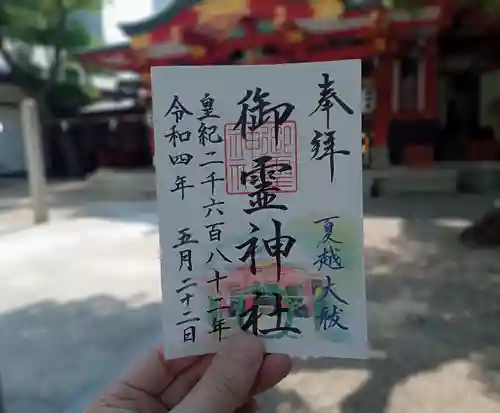 奉拝
夏越大祓
御靈神社
皇紀二千六百八十二年
令和四年 五月二十二日